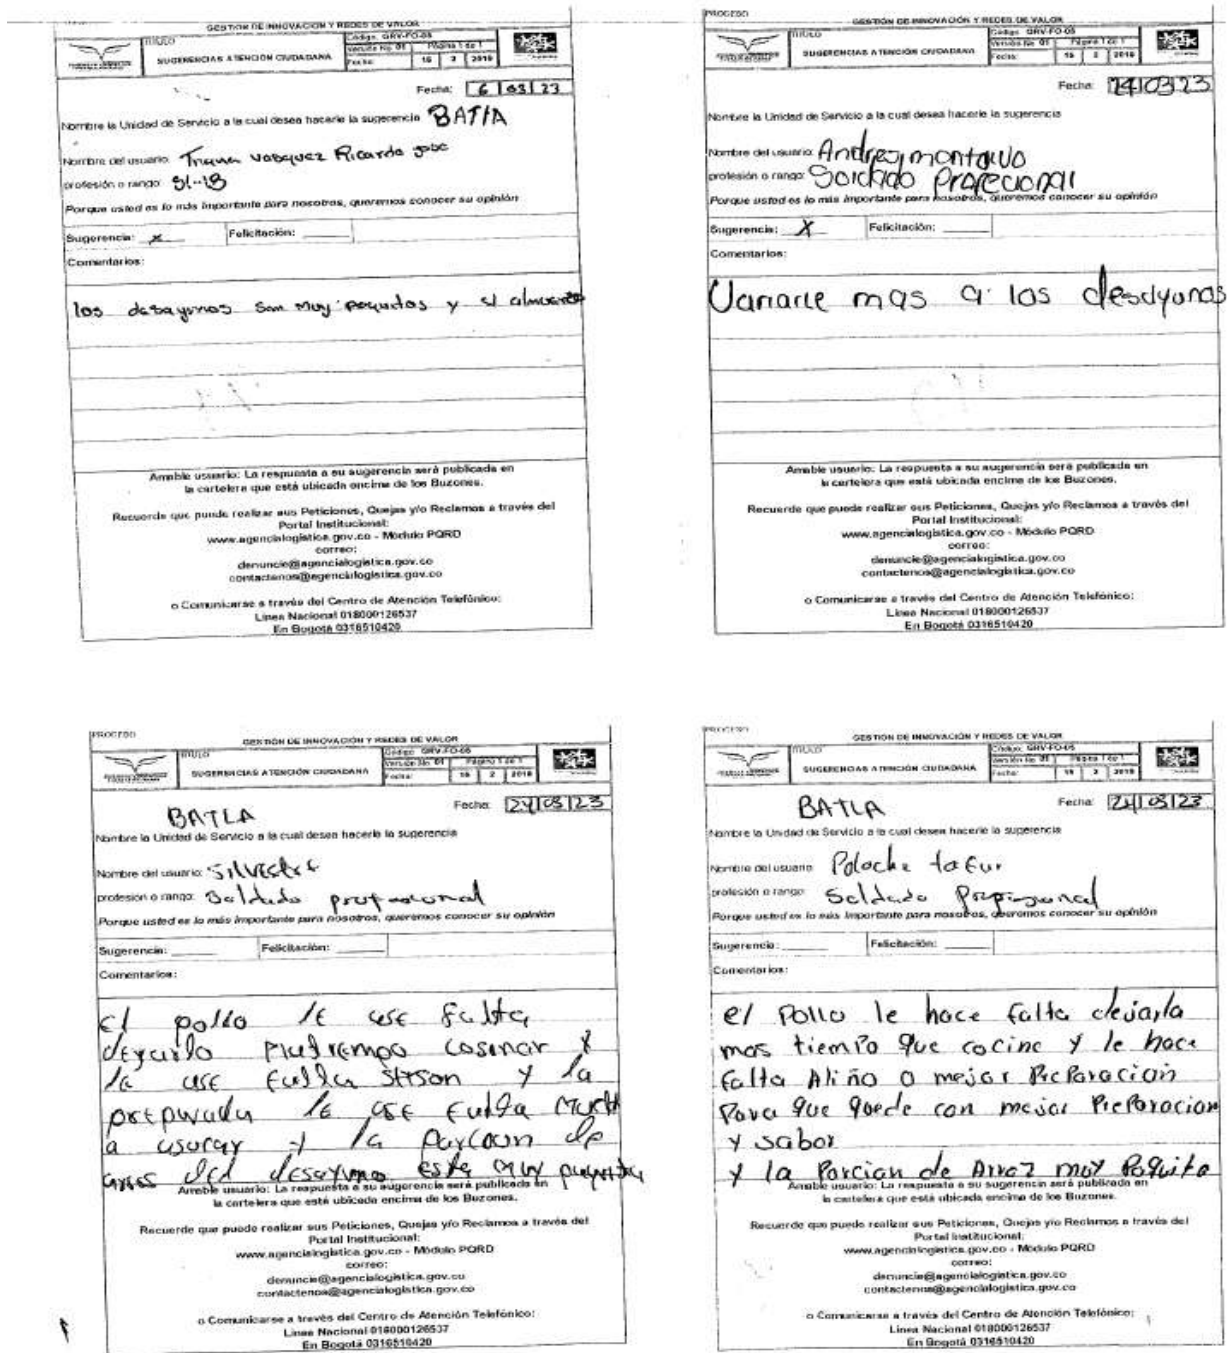 GESTIÓN DE INNOVACIÓN Y REDES DE VALOR
TITULO
SUGERENCIAS ATENCIÓN CIUDADANA
Código: GRV-FO-05
Versión No. 01 Página 1 de 1
Fecha: 15 2 2018
Fecha: 6 03 23
Nombre la Unidad de Servicio a la cual desea hacerle la sugerencia BATLA
Nombre del usuario: Triana Vasquez Ricardo jose
profesión o rango:
Porque usted es lo más importante para nosotros, queremos conocer su opinión
Sugerencia: X Felicitación:
Comentarios:
los desayunos son muy pequeños y el almuerzo
Amable usuario: La respuesta a su sugerencia será publicada en
la cartelera que está ubicada encima de los Buzones.
Recuerde que puede realizar sus Peticiones, Quejas y/o Reclamos a través del
Portal Institucional:
www.agencialogistica.gov.co - Módulo PQRD
correo:
denuncie@agencialogistica.gov.co
contactenos@agencialogistica.gov.co
o Comunicarse a través del Centro de Atención Telefónico:
Linea Nacional 018000126537
En Bogotá 0316510420
PROCESO
GESTIÓN DE INNOVACIÓN Y REDES DE VALOR
TITULO
SUGERENCIAS ATENCIÓN CIUDADANA
Código: GRV-FO-05
Versión No. 01 Página 1 de 1
Fecha: 15 2 2018
Fecha: 24 03 23
Nombre la Unidad de Servicio a la cual desea hacerle la sugerencia
Nombre del usuario: Andres montalvo
profesión o rango: Soldado Profecional
Porque usted es lo más importante para nosotros, queremos conocer su opinión
Sugerencia: X Felicitación:
Comentarios:
Variarle mas a los desayunas
Amable usuario: La respuesta a su sugerencia será publicada en
la cartelera que está ubicada encima de los Buzones.
Recuerde que puede realizar sus Peticiones, Quejas y/o Reclamos a través del
Portal Institucional:
www.agencialogistica.gov.co - Módulo PQRD
correo:
denuncie@agencialogistica.gov.co
contactenos@agencialogistica.gov.co
o Comunicarse a través del Centro de Atención Telefónico:
Linea Nacional 018000126537
En Bogotá 0316510420
PROCESO
GESTIÓN DE INNOVACIÓN Y REDES DE VALOR
TITULO
SUGERENCIAS ATENCIÓN CIUDADANA
Código: GRV-FO-05
Versión No. 01 Página 1 de 1
Fecha: 15 2 2018
BATLA Fecha: 24 03 23
Nombre la Unidad de Servicio a la cual desea hacerle la sugerencia
Nombre del usuario: Silvestre
profesión o rango: Soldado profesional
Porque usted es lo más importante para nosotros, queremos conocer su opinión
Sugerencia: Felicitación:
Comentarios:
el pollo le ase falta
dejarlo cosinar y
le ase falta sason y la
le ase falta
a y la
arros del desayuno esta muy
Amable usuario: La respuesta a su sugerencia será publicada en
la cartelera que está ubicada encima de los Buzones.
Recuerde que puede realizar sus Peticiones, Quejas y/o Reclamos a través del
Portal Institucional:
www.agencialogistica.gov.co - Módulo PQRD
correo:
denuncie@agencialogistica.gov.co
contactenos@agencialogistica.gov.co
o Comunicarse a través del Centro de Atención Telefónico:
Linea Nacional 018000126537
En Bogotá 0316510420
PROCESO
GESTIÓN DE INNOVACIÓN Y REDES DE VALOR
TITULO
SUGERENCIAS ATENCIÓN CIUDADANA
Código: GRV-FO-05
Versión No. 01 Página 1 de 1
Fecha: 15 2 2018
BATLA Fecha: 24 03 23
Nombre la Unidad de Servicio a la cual desea hacerle la sugerencia
Nombre del usuario: Poloche tafur
profesión o rango: Soldado Profesional
Porque usted es lo más importante para nosotros, queremos conocer su opinión
Sugerencia: Felicitación:
Comentarios:
el Pollo le hace falta dejarla
mas tiempo que cocine y le hace
falta Aliño o mejor Preparacion
Para que quede con mejor Preparacion
y sabor
y la Porcion de Arroz muy Poquito
Amable usuario: La respuesta a su sugerencia será publicada en
la cartelera que está ubicada encima de los Buzones.
Recuerde que puede realizar sus Peticiones, Quejas y/o Reclamos a través del
Portal Institucional:
www.agencialogistica.gov.co - Módulo PQRD
correo:
denuncie@agencialogistica.gov.co
contactenos@agencialogistica.gov.co
o Comunicarse a través del Centro de Atención Telefónico:
Linea Nacional 018000126537
En Bogotá 0316510420